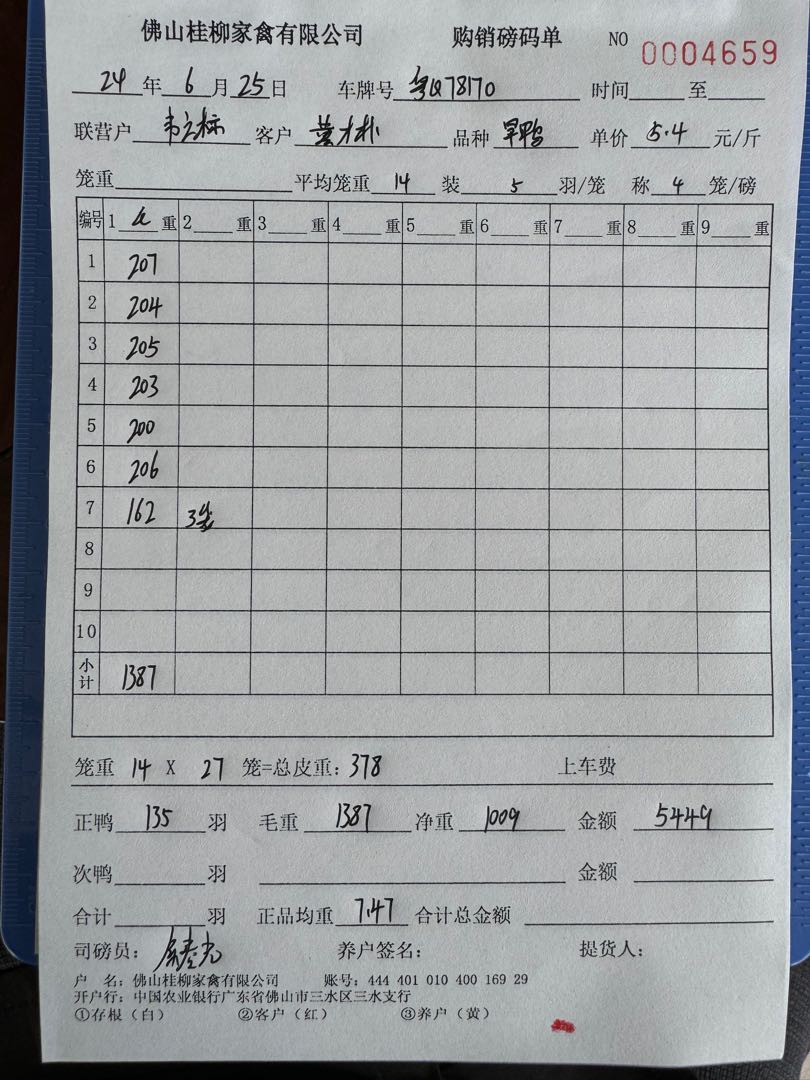 佛山桂柳家禽有限公司 购销磅码单 NO 0004659
24年6月25日 车牌号 粤Q78170 时间____至____
联营户 韦立标 客户 黄才朴 品种 旱鸭 单价 5.4 元/斤
笼重____ 平均笼重 14 装 5 羽/笼 称 4 笼/磅
编号 1____重 2____重 3____重 4____重 5____重 6____重 7____重 8____重 9____重
1 207
2 204
3 205
4 203
5 200
6 206
7 162 3笼
8
9
10
小计 1387
笼重 14 X 27 笼=总皮重: 378 上车费
正鸭 135 羽 毛重 1387 净重 1009 金额 5449
次鸭____羽 ____ 金额____
合计____羽 正品均重 7.47 合计总金额____
司磅员: 养户签名: 提货人:
户 名: 佛山桂柳家禽有限公司 账号: 444 401 010 400 169 29
开户行: 中国农业银行广东省佛山市三水区三水支行
①存根(白) ②客户(红) ③养户(黄)